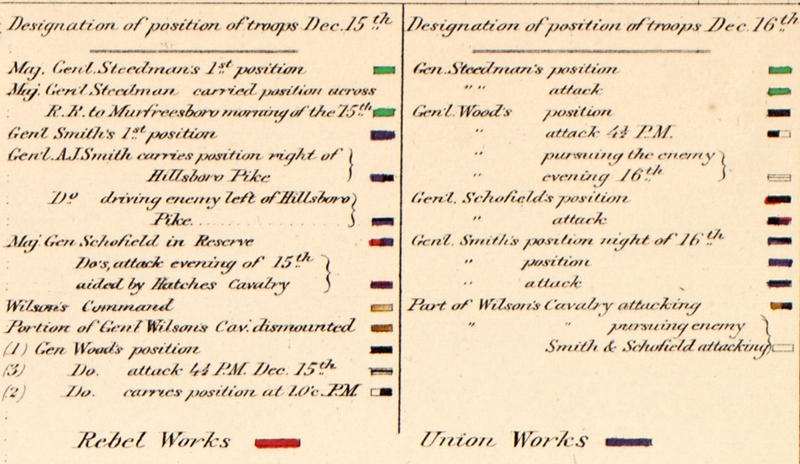 Designation of position of troops Dec. 15th
Maj. Gen'l. Steedman's 1st position
Maj. Gen'l Steedman carried position across
R.R. to Murfreesboro morning of the 15th
Gen'l Smith's 1st position
Gen'l. A.J. Smith carries position right of
Hillsboro Pike
Do driving enemy left of Hillsboro
Pike
Maj Gen Schofield in Reserve
Do's, attack evening of 15th
aided by Hatches Cavalry
Wilson's Command
Portion of Genl Wilson's Cav. dismounted
(1) Gen Wood's position
(3) Do. attack 4½ P.M. Dec. 15th
(2) Do. carries position at 1.0'c. P.M.
Rebel Works
Designation of position of troops Dec. 16th
Gen. Steedman's position
" " attack
Gen'l. Wood's position
" attack 4½ P.M.
" pursuing the enemy
" evening 16th
Gen'l. Schofield's position
" attack
Gen'l. Smith's position night of 16th
" position
" attack
Part of Wilson's Cavalry attacking
" " pursuing enemy
Smith & Schofield attacking
Union Works